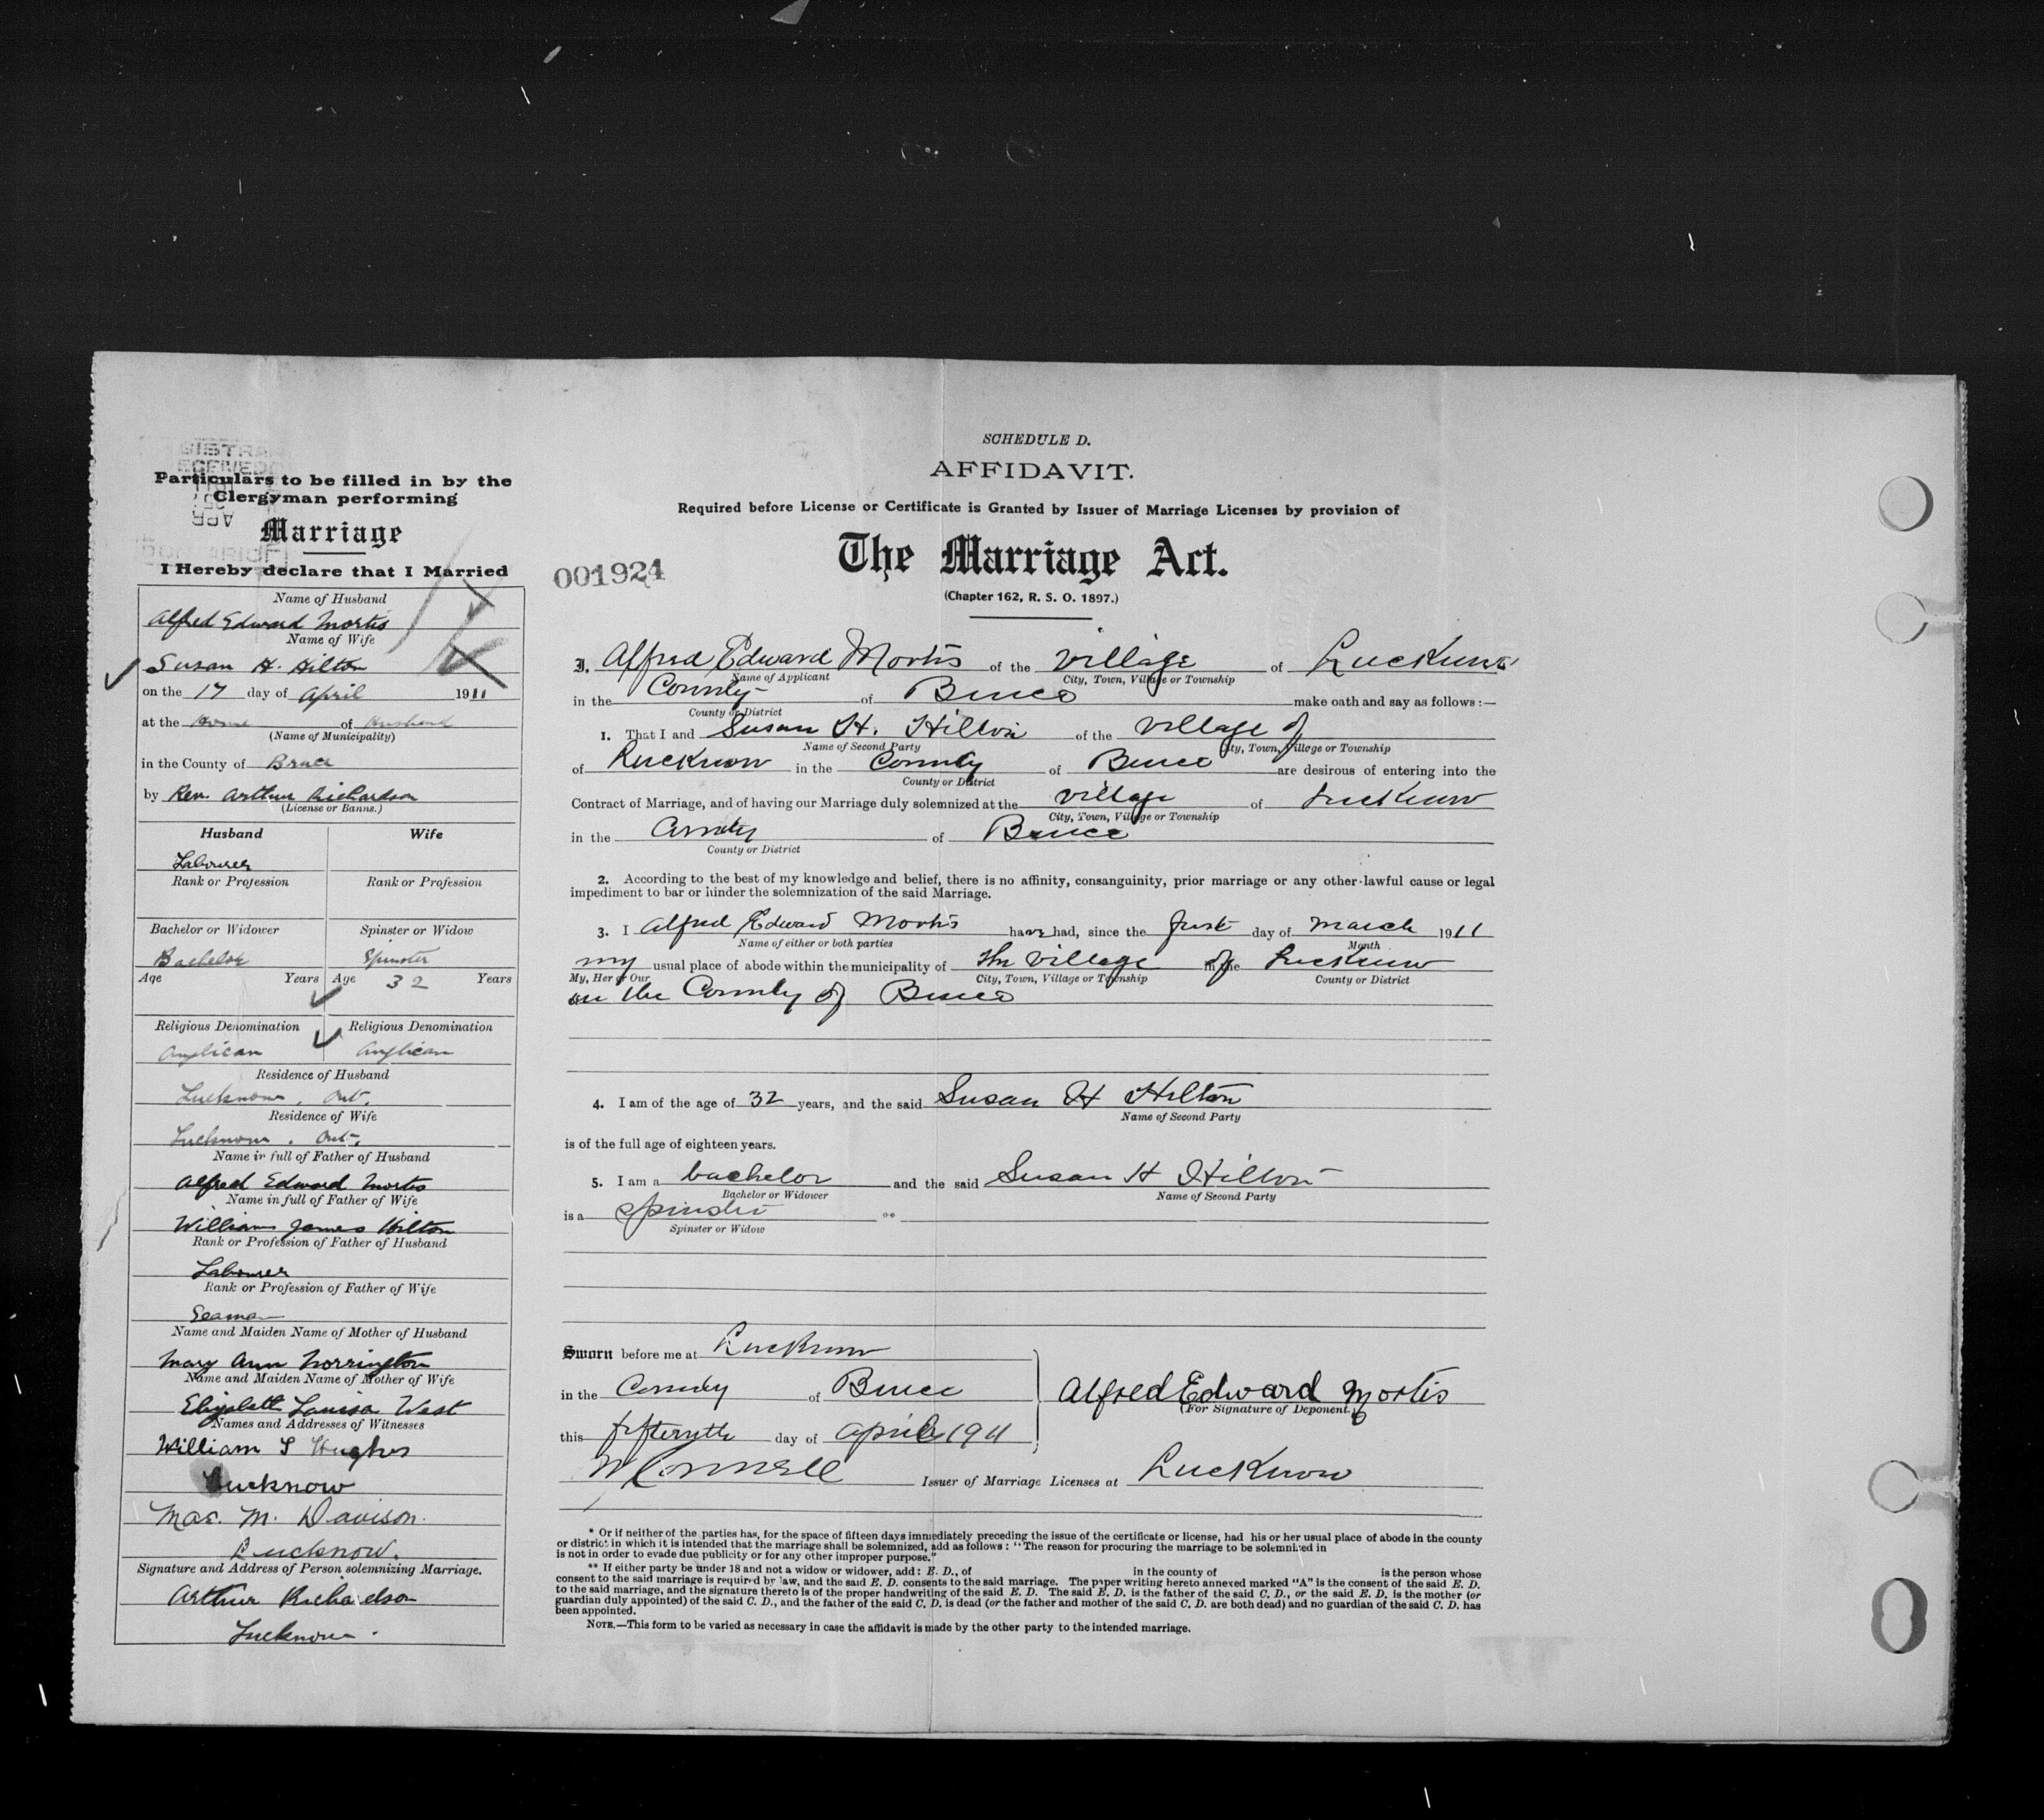 Particulars to be filled in by the
Clergyman performing
Marriage
I Hereby declare that I Married
Name of Husband
Alfred Edward Mortis
Name of Wife
Susan H. Hilton
on the 17 day of April 1911
at the Home of Husband
(Name of Municipality)
in the County of Bruce
by Rev. Arthur Richardson
(License or Banns.)
Husband Wife
Labourer
Rank or Profession Rank or Profession
Bachelor or Widower Spinster or Widow
Bachelor Spinster
Age Years Age 32 Years
Religious Denomination Religious Denomination
Anglican Anglican
Residence of Husband
Lucknow, Ont.
Residence of Wife
Lucknow, Ont.
Name in full of Father of Husband
Alfred Edward Mortis
Name in full of Father of Wife
William James Hilton
Rank or Profession of Father of Husband
Labourer
Rank or Profession of Father of Wife
Seaman
Name and Maiden Name of Mother of Husband
Mary Ann Norrington
Name and Maiden Name of Mother of Wife
Elizabeth Louisa West
Names and Addresses of Witnesses
William S Hughes
Lucknow
M. Davison.
Lucknow.
Signature and Address of Person solemnizing Marriage.
Arthur Richardson
Lucknow.
SCHEDULE D.
AFFIDAVIT.
Required before License or Certificate is Granted by Issuer of Marriage Licenses by provision of
The Marriage Act.
001924
(Chapter 162, R. S. O. 1897.)
I, Alfred Edward Mortis of the village of Lucknow
Name of Applicant City, Town, Village or Township
in the County of Bruce make oath and say as follows:—
County or District
1. That I and Susan H. Hilton of the village of
Name of Second Party City, Town, Village or Township
of Lucknow in the County of Bruce are desirous of entering into the
County or District
Contract of Marriage, and of having our Marriage duly solemnized at the village of Lucknow
City, Town, Village or Township
in the County of Bruce
County or District
2. According to the best of my knowledge and belief, there is no affinity, consanguinity, prior marriage or any other lawful cause or legal
impediment to bar or hinder the solemnization of the said Marriage.
3. I Alfred Edward Mortis have had, since the first day of March 1911
Name of either or both parties Month
my usual place of abode within the municipality of the village of in the Lucknow
My, Her or Our City, Town, Village or Township County or District
in the County of Bruce
4. I am of the age of 32 years, and the said Susan H Hilton
Name of Second Party
is of the full age of eighteen years.
5. I am a bachelor and the said Susan H Hilton
Bachelor or Widower Name of Second Party
is a spinster **
Spinster or Widow
Sworn before me at Lucknow
in the County of Bruce
this fifteenth day of April 1911
Alfred Edward Mortis
(For Signature of Deponent.)
Issuer of Marriage Licenses at Lucknow
* Or if neither of the parties has, for the space of fifteen days immediately preceding the issue of the certificate or license, had his or her usual place of abode in the county
or district in which it is intended that the marriage shall be solemnized, add as follows: "The reason for procuring the marriage to be solemnized in
is not in order to evade due publicity or for any other improper purpose."
** If either party be under 18 and not a widow or widower, add: E. D., of in the county of is the person whose
consent to the said marriage is required by law, and the said E. D. consents to the said marriage. The paper writing hereto annexed marked "A" is the consent of the said E. D.
to the said marriage, and the signature thereto is of the proper handwriting of the said E. D. The said E. D. is the father of the said C. D., or the said E. D. is the mother (or
guardian duly appointed) of the said C. D., and the father of the said C. D. is dead (or the father and mother of the said C. D. are both dead) and no guardian of the said C. D. has
been appointed.
NOTE.—This form to be varied as necessary in case the affidavit is made by the other party to the intended marriage.